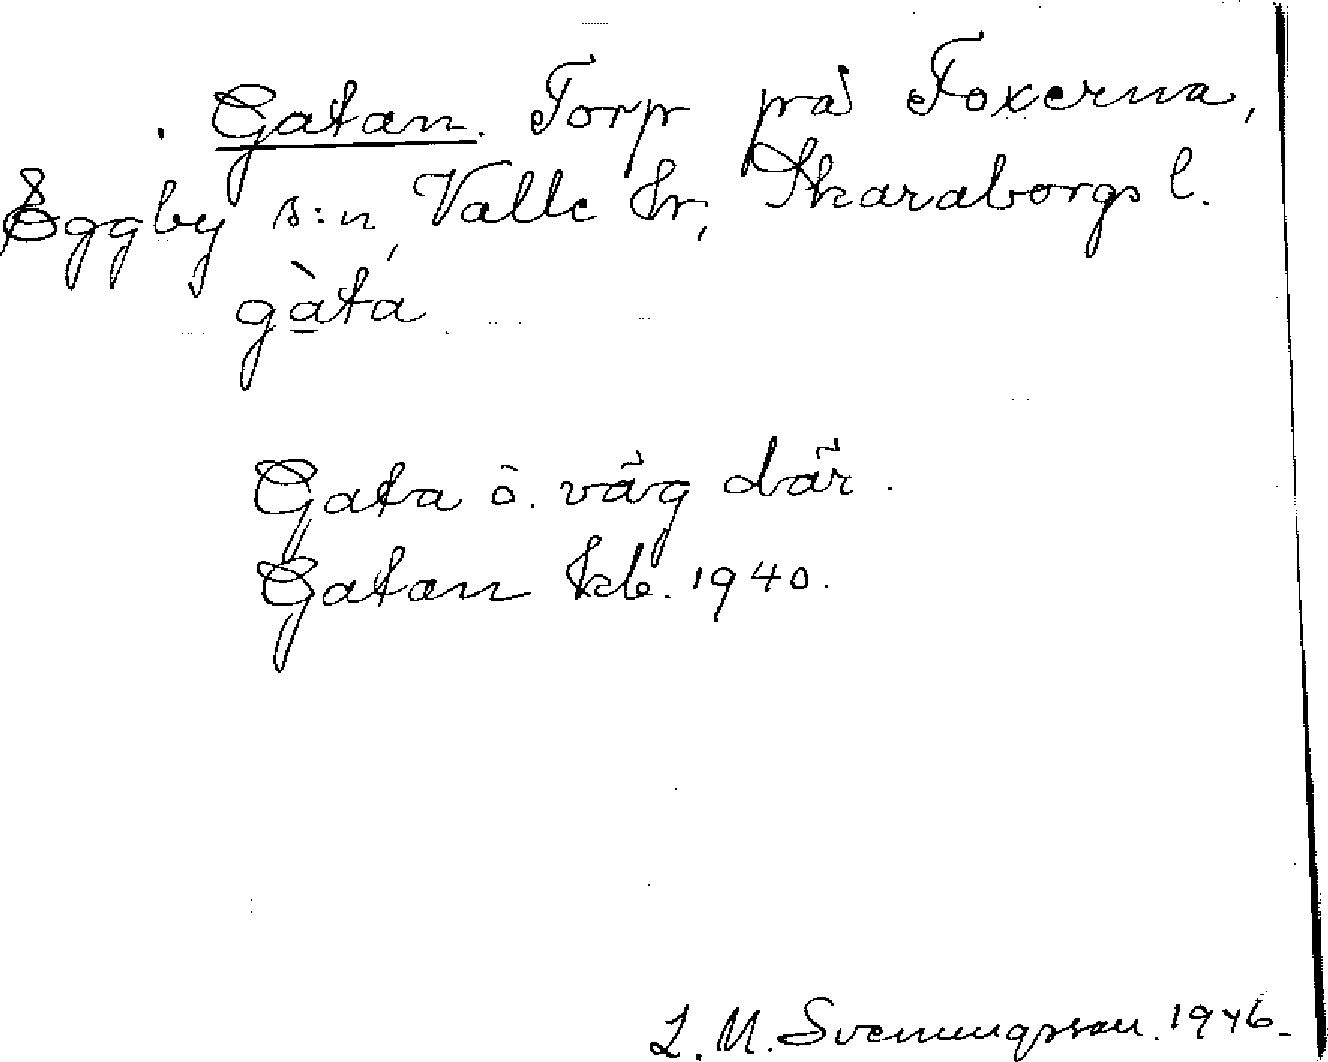 Gatan. Torp på Foxerna,
Eggby s:n, Valle hr, Skaraborgs l.
gàta
Gata o. väg där.
Gatan kb. 1940.
L. M. Svenungsson. 1946.